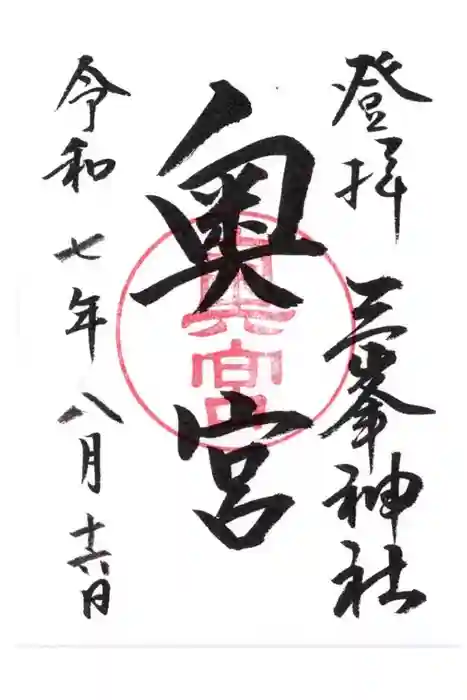 登拝 三峯神社
奥宮
奥宮
令和七年八月十六日